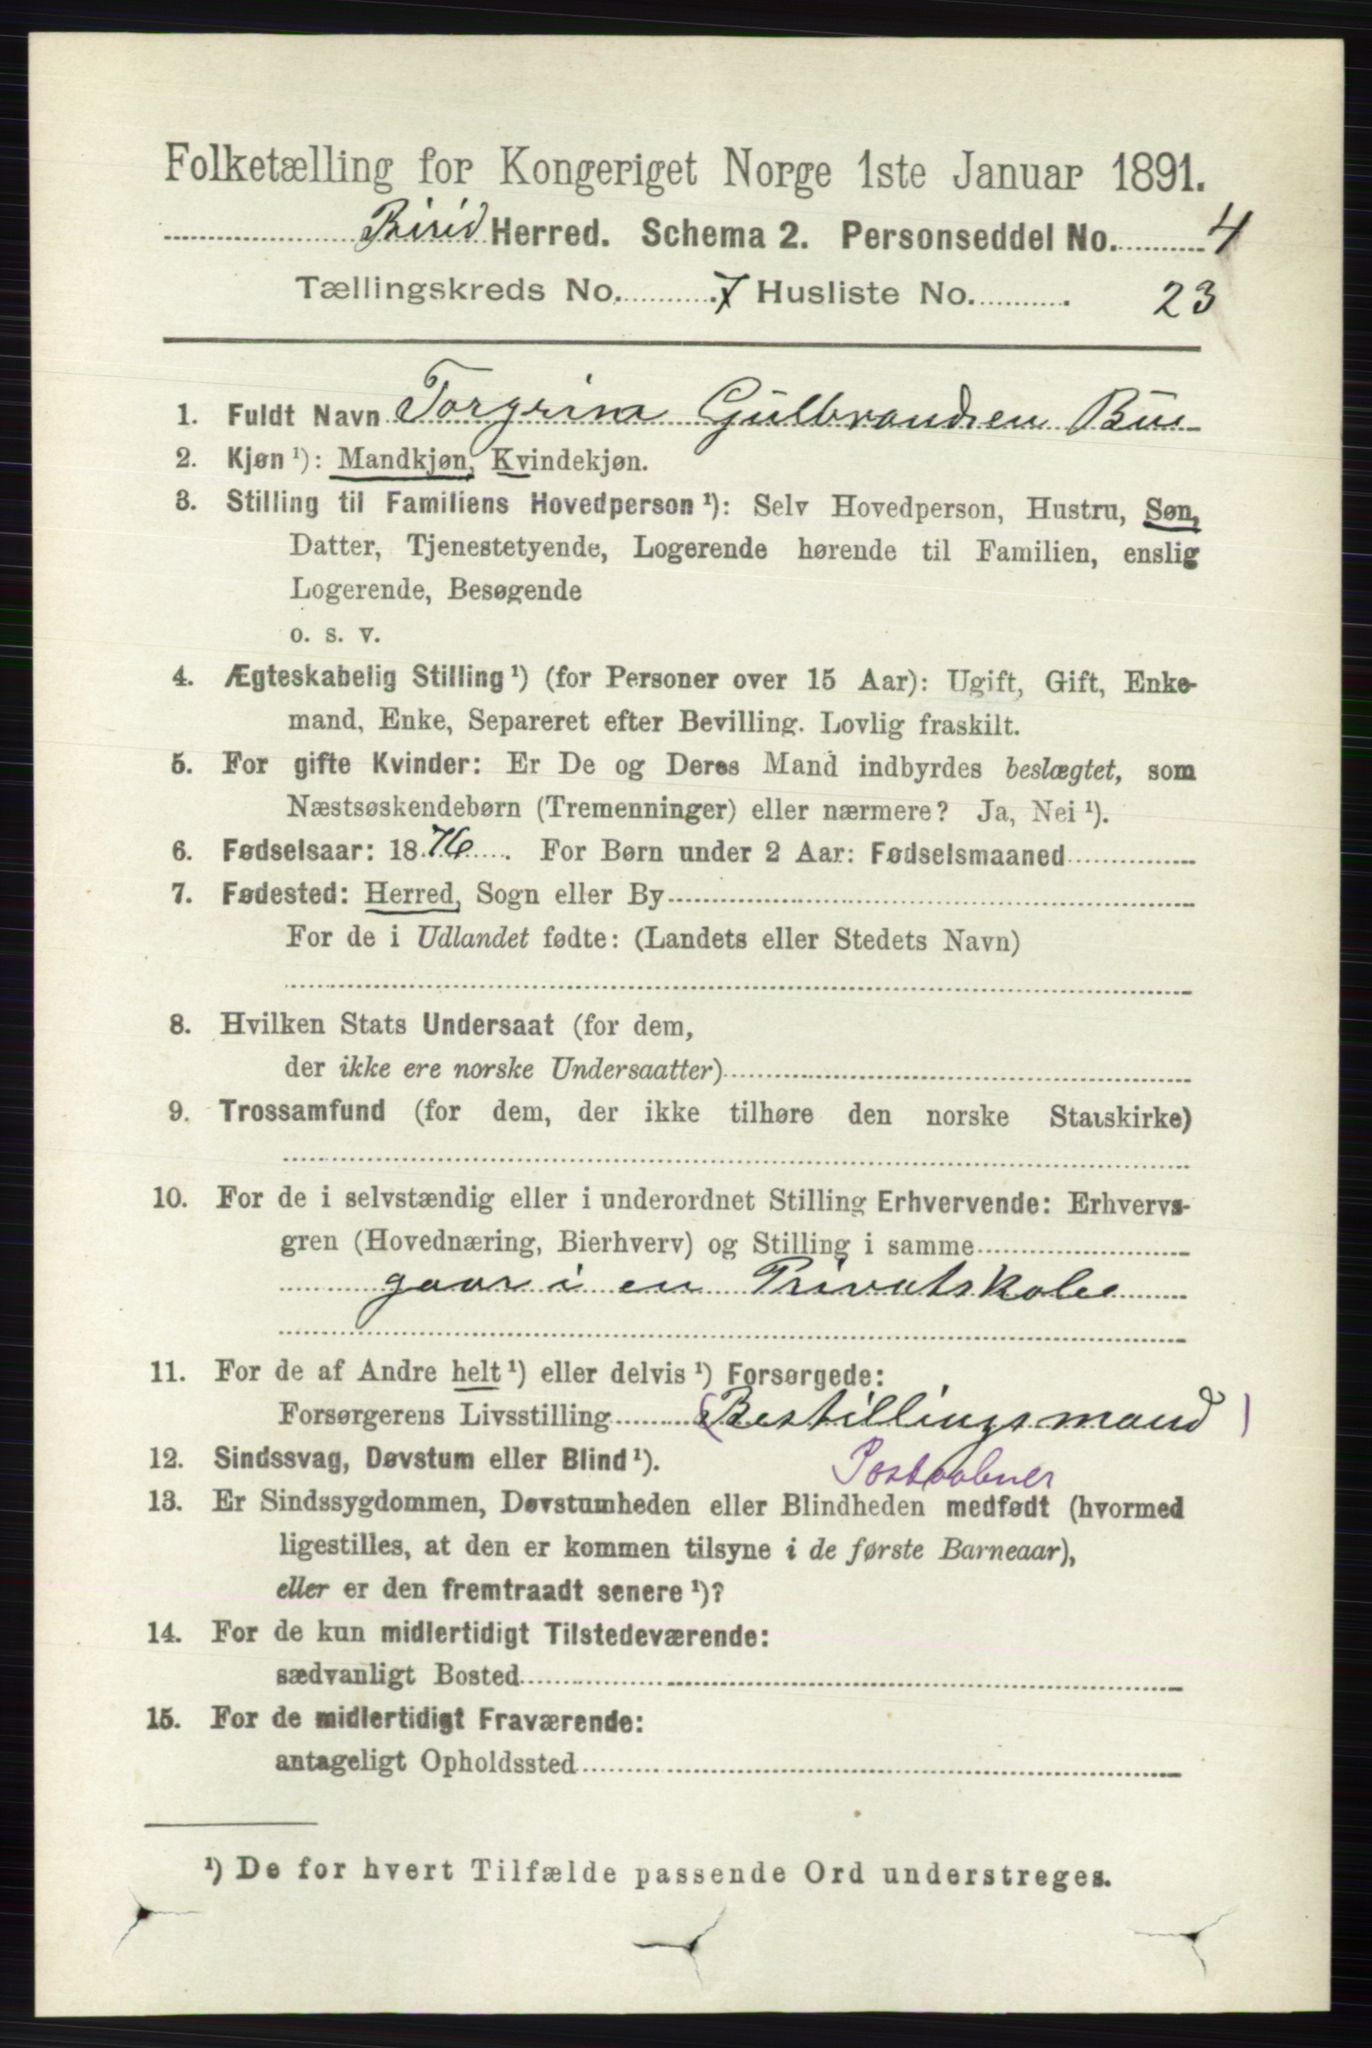 Folketælling for Kongeriget Norge 1ste Januar 1891.
Birid Herred. Schema 2. Personseddel No. 4
Tællingskreds No. 7 Husliste No. 23
1. Fuldt Navn Torgrim Gulbrandsen Bue
2. Kjøn ¹): Mandkjøn, Kvindekjøn.
3. Stilling til Familiens Hovedperson ¹): Selv Hovedperson, Hustru, Søn,
Datter, Tjenestetyende, Logerende hørende til Familien, enslig
Logerende, Besøgende
o. s. v.
4. Ægteskabelig Stilling ¹) (for Personer over 15 Aar): Ugift, Gift, Enke-
mand, Enke, Separeret efter Bevilling. Lovlig fraskilt.
5. For gifte Kvinder: Er De og Deres Mand indbyrdes beslægtet, som
Næstsøskendebørn (Tremenninger) eller nærmere? Ja, Nei ¹).
6. Fødselsaar: 1876. For Børn under 2 Aar: Fødselsmaaned
7. Fødested: Herred, Sogn eller By
For de i Udlandet fødte: (Landets eller Stedets Navn)
8. Hvilken Stats Undersaat (for dem,
der ikke ere norske Undersaatter)
9. Trossamfund (for dem, der ikke tilhøre den norske Statskirke)
10. For de i selvstændig eller i underordnet Stilling Erhvervende: Erhvervs-
gren (Hovednæring, Bierhverv) og Stilling i samme
gaar i en Privatskole
11. For de af Andre helt ¹) eller delvis ¹) Forsørgede:
Forsørgerens Livsstilling (Bestillingsmand)
12. Sindssvag, Døvstum eller Blind ¹). Postaabner
13. Er Sindssygdommen, Døvstumheden eller Blindheden medfødt (hvormed
ligestilles, at den er kommen tilsyne i de første Barneaar),
eller er den fremtraadt senere ¹)?
14. For de kun midlertidigt Tilstedeværende:
sædvanligt Bosted
15. For de midlertidigt Fraværende:
antageligt Opholdssted
¹) De for hvert Tilfælde passende Ord understreges.